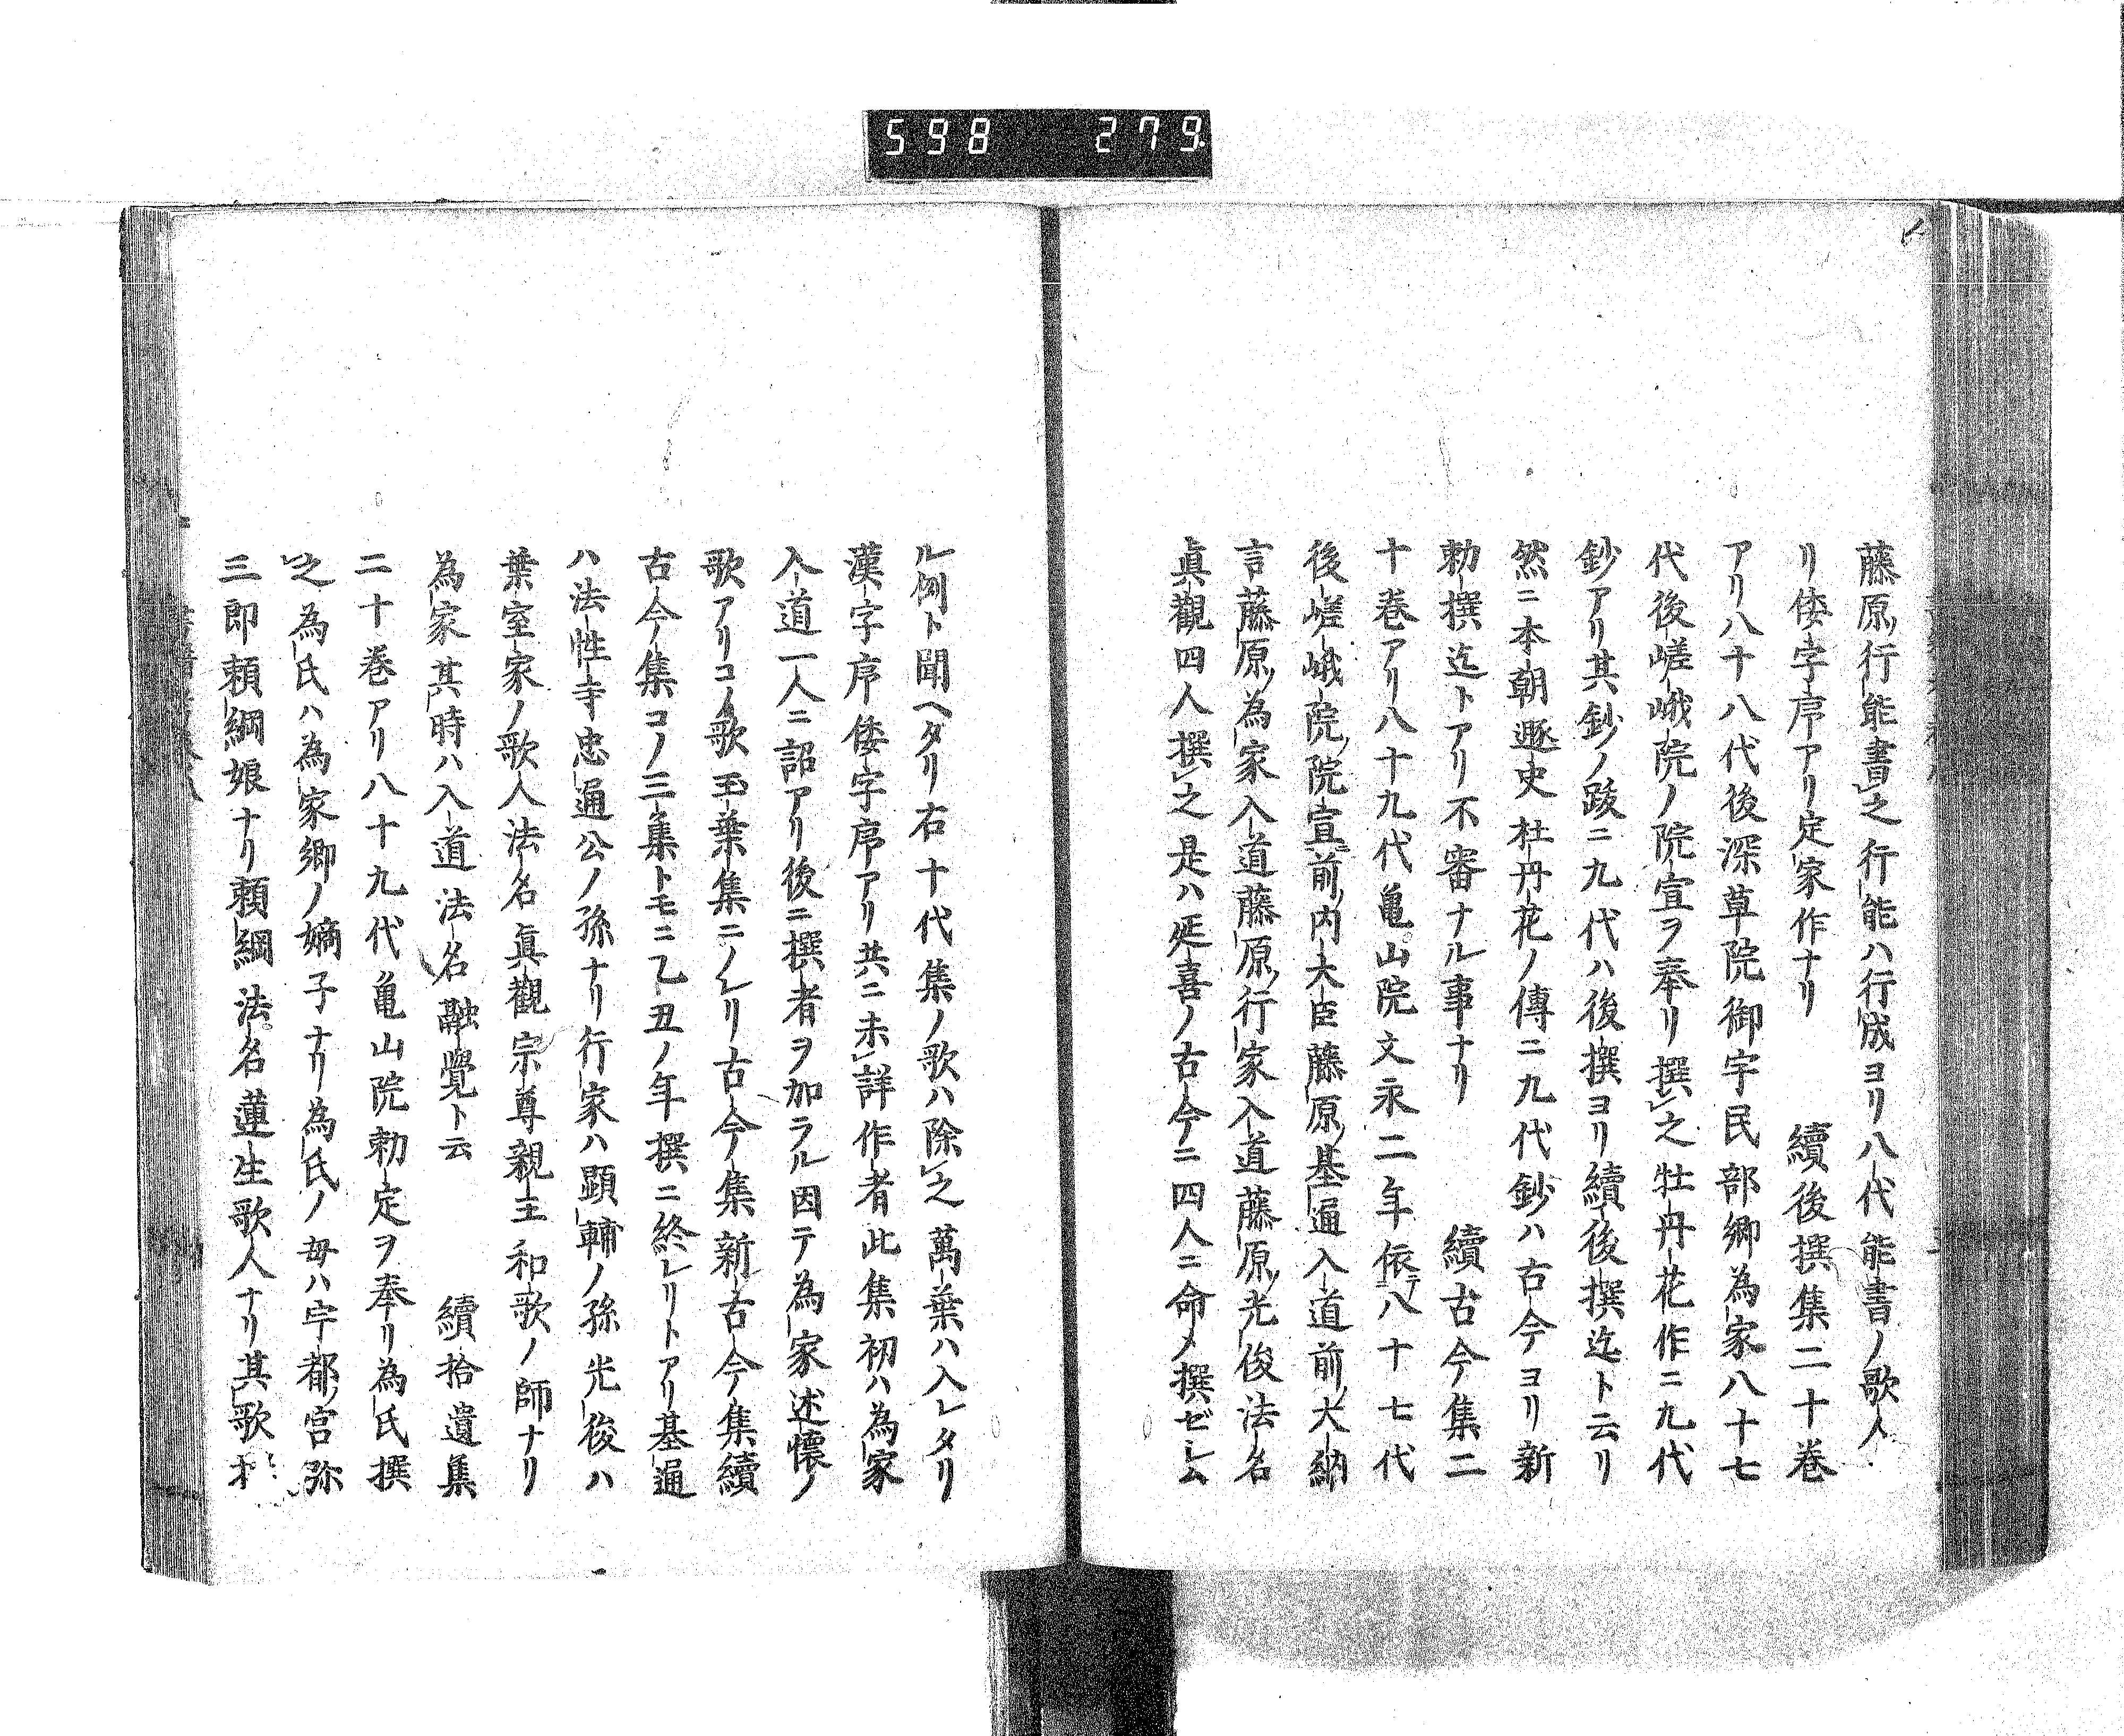 598 279
藤原ノ行能書之行能ハ行成ヨリ八代能書ノ歌人
リ倭字序アリ定家作ナリ 續後撰集二十巻
アリ八十八代後深草院御宇民部卿為家八十七
代後嵯峨院ノ院宣ヲ奉リ撰之牡丹花作ニ九代
鈔アリ其鈔ノ跋ニ九代ハ後撰ヨリ續後撰迄ト云リ
然ニ本朝遯史杜丹花ノ傳ニ九代鈔ハ古今ヨリ新
勅撰迄トアリ不審ナル事ナリ 續古今集二
十巻アリ八十九代亀山院文永二年依テ八十七代
後嵯峨院ノ院宣ニ前ノ内大臣藤原ノ基通入道前ノ大納
言藤原ノ為家入道藤原ノ行家入道藤原ノ光俊法名
眞觀四人撰之是ハ延喜ノ古今ニ四人ニ命メ撰ゼシム
ル例ト聞ヘタリ右十代集ノ歌ハ除之萬葉ハ入レタリ
漢字序倭字序アリ共ニ未詳作者此集初ハ為家
入道一人ニ詔アリ後ニ撰者ヲ加ラル因テ為家述懐ノ
歌アリコノ歌玉葉集ニノレリ古今集新古今集續
古今集コノ三集トモニ乙丑ノ年撰ニ終レリトアリ基通
ハ法性寺忠通公ノ孫ナリ行家ハ顕輔ノ孫光俊ハ
葉室家ノ歌人法名眞觀宗尊親王和歌ノ師ナリ
為家其時ハ入道法名融覺ト云 續拾遺集
二十巻アリ八十九代亀山院勅定ヲ奉リ為氏撰
之為氏ハ為家卿ノ嫡子ナリ為氏ノ母ハ宇都ノ宮弥
三郎頼綱娘ナリ頼綱法名蓮生歌人ナリ其歌